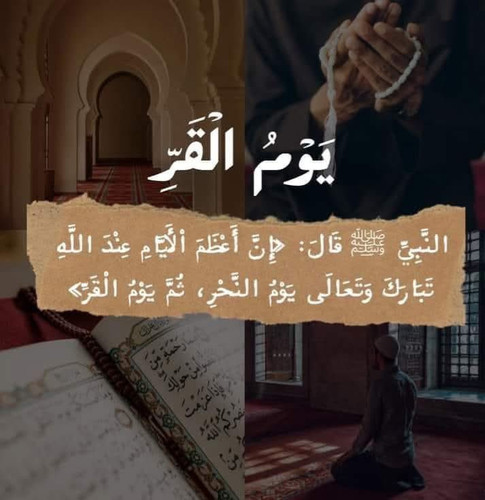 يَوْمُ الْقَرِّ
النَّبِيِّ ﷺ قَالَ: «إِنَّ أَعْظَمَ الْأَيَّامِ عِنْدَ اللَّهِ
تَبَارَكَ وَتَعَالَى يَوْمُ النَّحْرِ، ثُمَّ يَوْمُ الْقَرِّ»